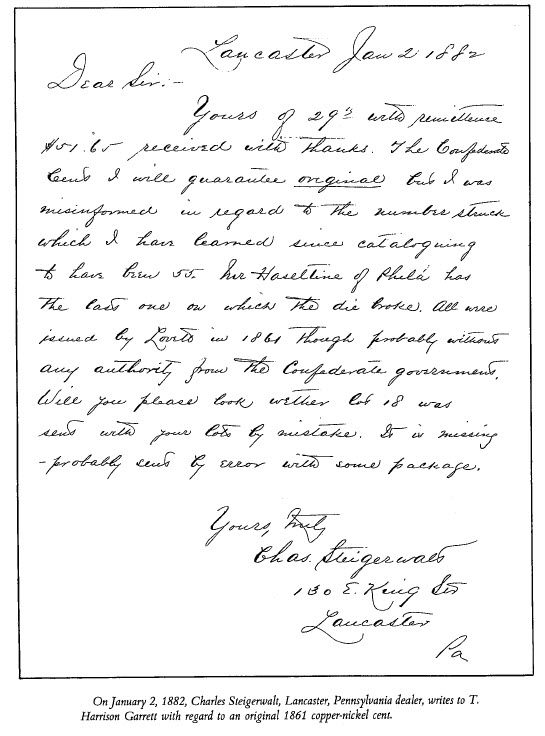 Lancaster Jan 2 1882
Dear Sir:-
Yours of 29th with remittence
$51.65 received with thanks. The Confederate
Cent I will guarantee original but I was
misinformed in regard to the number struck
which I have learned since cataloguing
to have been 55. Mr Haseltine of Phila has
the last one on which the die broke. All were
issued by Lovett in 1861 though probably without
any authority from the Confederate government.
Will you please look wether lot 18 was
sent with your lots by mistake. It is missing
-probably sent by error with some package.
Yours, Truly
Chas. Steigerwalt
130 E. King St
Lancaster
Pa
On January 2, 1882, Charles Steigerwalt, Lancaster, Pennsylvania dealer, writes to T.
Harrison Garrett with regard to an original 1861 copper-nickel cent.